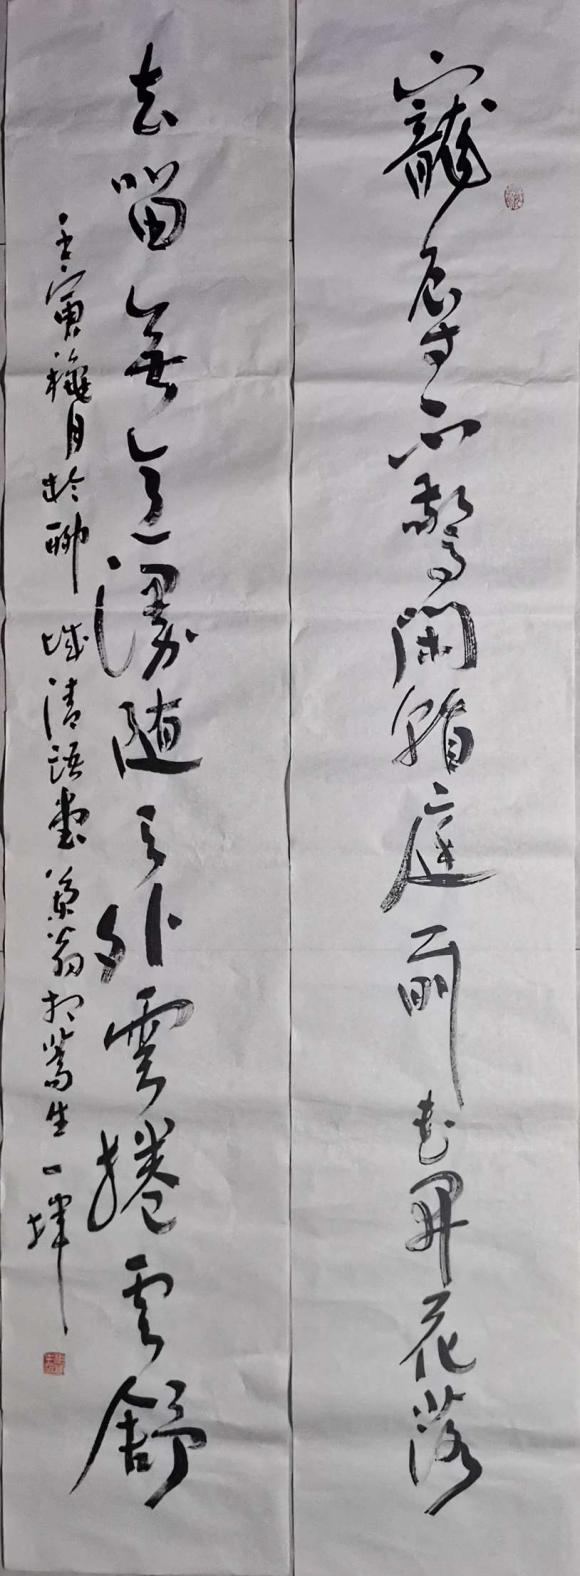 寵辱不驚閑看庭前花開花落
去留無意漫随天外雲捲雲舒
壬寅穐月於聊城清語堂 翁 生一墀